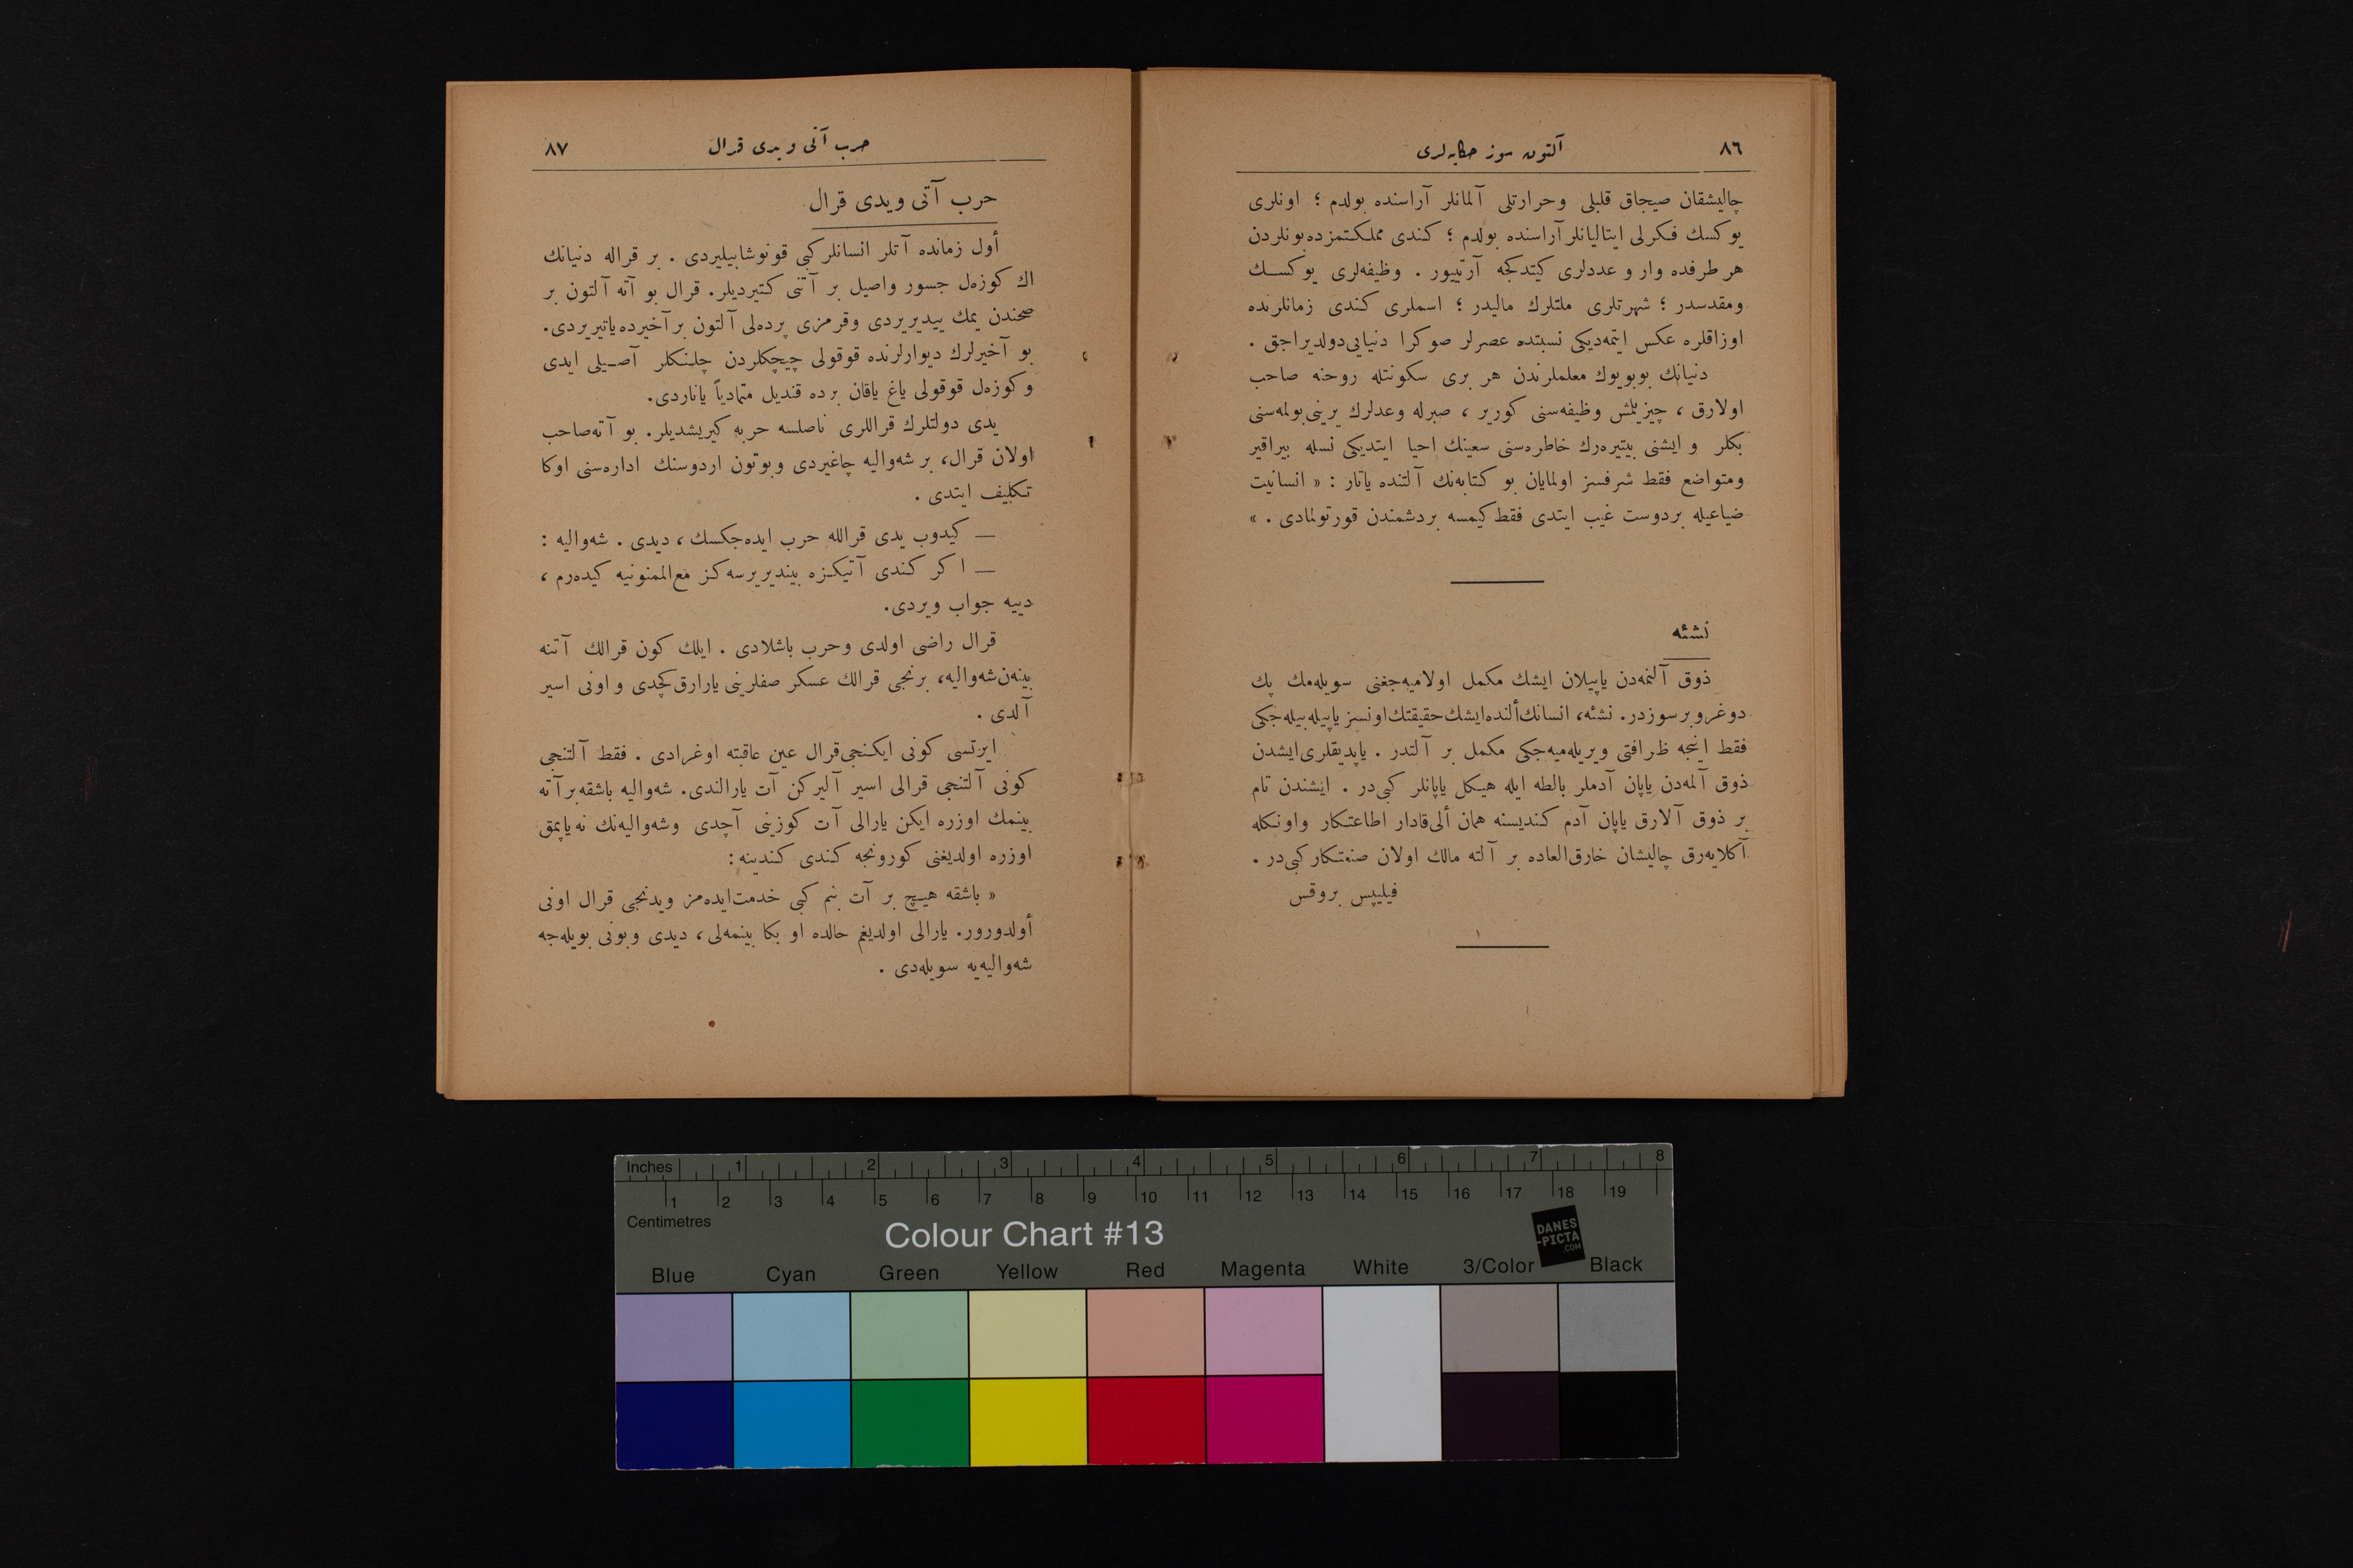 ٨٦
آلتون سوز حكايه‌لری
چاليشقان صيجاق قلبلی وحرارتلی آلمانلر آراسنده بولدم ؛ اونلری
يوكسك فكرلی ايتاليانلر آراسنده بولدم ؛ كندی مملكتمزده بونلردن
هر طرفده وار و عددلری كيتدكجه آرتييور . وظيفه‌لری يوكسك
ومقدسدر ؛ شهرتلری ملتلرك ماليدر ؛ اسملری كندی زمانلرنده
اوزاقلره عكس ايتمه‌ديكی نسبتده عصرلر صوكرا دنيايی دولديراجق .
دنيانك بويوك معلملرندن هر بری سكونتله روحنه صاحب
اولارق ، چيزيلمش وظيفه‌سنی كورير ، صبرله وعدلرك يرينی بولمه‌سنی
بكلر و ايشنی بيتيره‌رك خاطره‌سنی سعينك احيا ايتديكی نسله بيراقير
ومتواضع فقط شرفسز اولمايان بو كتابه‌نك آلتنده ياتار : « انسانيت
ضياعيله بردوست غيب ايتدی فقط كيمسه بردشمندن قورتولمادی . »
نشئه
ذوق آلنمه‌دن ياپيلان ايشك مكمل اولاميه‌جغنی سويله‌مك پك
دوغروبرسوزدر. نشئه، انسانك ألنده ايشك حقيقتك اونسز ياپيله‌بيله‌جكی
فقط اينجه ظرافتی ويريله‌ميه‌جكی مكمل بر آلتدر . ياپديقلری ايشدن
ذوق آلمه‌دن ياپان آدملر بالطه ايله هيكل ياپانلر كبی‌در . ايشندن تام
بر ذوق آلارق ياپان آدم كنديسنه همان ألی قادار اطاعتكار واونكله
آكلايه‌رق چاليشان خارق‌العاده بر آلته مالك اولان صنعتكار كبی‌در .
فيليپس بروقس
١
حرب آتی ويدی قرال
٨٧
حرب آتی ويدی قرال
أول زمانده آتلر انسانلر كبی قونوشابيليردی . بر قراله دنيانك
اك كوزه‌ل جسور واصيل بر آتنی كتيرديلر. قرال بو آته آلتون بر
صحندن يمك ييديريردی وقرمزی پرده‌لی آلتون بر آخيرده ياتيريردی.
بو آخيرلرك ديوارلرنده قوقولی چيچكلردن چلنكلر آصيلی ايدی
وكوزه‌ل قوقولی ياغ ياقان برده قنديل متمادياً ياناردی.
يدی دولتلرك قراللری ناصلسه حربه كيريشديلر. بو آته صاحب
اولان قرال، بر شه‌واليه چاغيردی وبوتون اردوسنك اداره‌سنی اوكا
تكليف ايتدی .
— كيدوب يدی قرالله حرب ايده‌جكسك ، ديدی . شه‌واليه :
— اكر كندی آتيكزه بينديريرسه‌كز مع‌الممنونيه كيده‌رم ،
دييه جواب ويردی.
قرال راضی اولدی وحرب باشلادی . ايلك كون قرالك آتنه
بينه‌ن شه‌واليه، برنجی قرالك عسكر صفلرينی يارارق كچدی و اونی اسير
آلدی .
ايرتسی كونی ايكنجی قرال عين عاقبته اوغرادی . فقط آلتنجی
كونی آلتنجی قرالی اسير آليركن آت يارالندی. شه‌واليه باشقه بر آته
بينمك اوزره ايكن يارالی آت كوزينی آچدی وشه‌واليه‌نك نه ياپمق
اوزره اولديغنی كورونجه كندی كندينه :
« باشقه هيچ بر آت بنم كبی خدمت ايده‌مز ويدنجی قرال اونی
أولدورور. يارالی اولديغم حالده او بكا بينمه‌لی ، ديدی وبونی بويله‌جه
شه‌واليه‌يه سويله‌دی .
Inches 1 2 3 4 5 6 7 8
1 2 3 4 5 6 7 8 9 10 11 12 13 14 15 16 17 18 19
Centimetres
Colour Chart #13
DANES
-PICTA
.COM
Blue Cyan Green Yellow Red Magenta White 3/Color Black